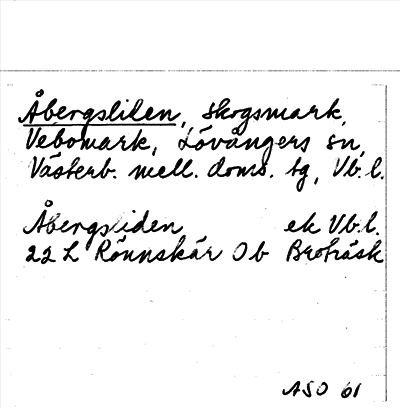 Åbergsliden, skogsmark,
Vebomark, Lövångers sn,
Västerb. mell. doms. tg, Vb.l.
Åbergsliden ek Vb.l.
22 L Rönnskär Ob Broträsk
ASO 61